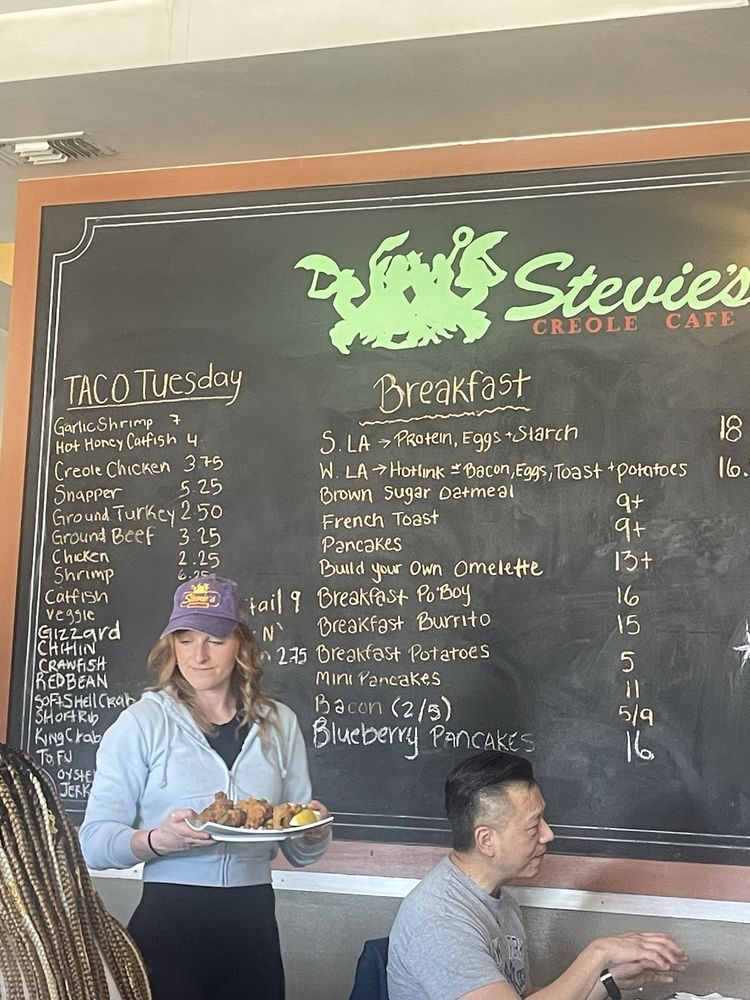 Stevie's
CREOLE CAFE
TACO Tuesday
Garlic Shrimp 7
Hot Honey Catfish 4
Creole Chicken 3.75
Snapper 5.25
Ground Turkey 2.50
Ground Beef 3.25
Chicken 2.25
Shrimp 6.25
Catfish
Veggie
Gizzard
CRAWFISH
REDBEAN
SOFT SHELL Crab
Short Rib
King Crab
TOFU
tail 9
N
2.75
Breakfast
S. LA → Protein, Eggs + Starch 18
W. LA → Hotlink Bacon, Eggs, Toast + potatoes 16.
Brown Sugar Oatmeal 9+
French Toast 9+
Pancakes
Build your Own Omelette 13+
Breakfast Po'Boy 16
Breakfast Burrito 15
Breakfast Potatoes 5
Mini Pancakes 11
Bacon (2/5) 5/9
Blueberry PANCAKES 16
Stevie's